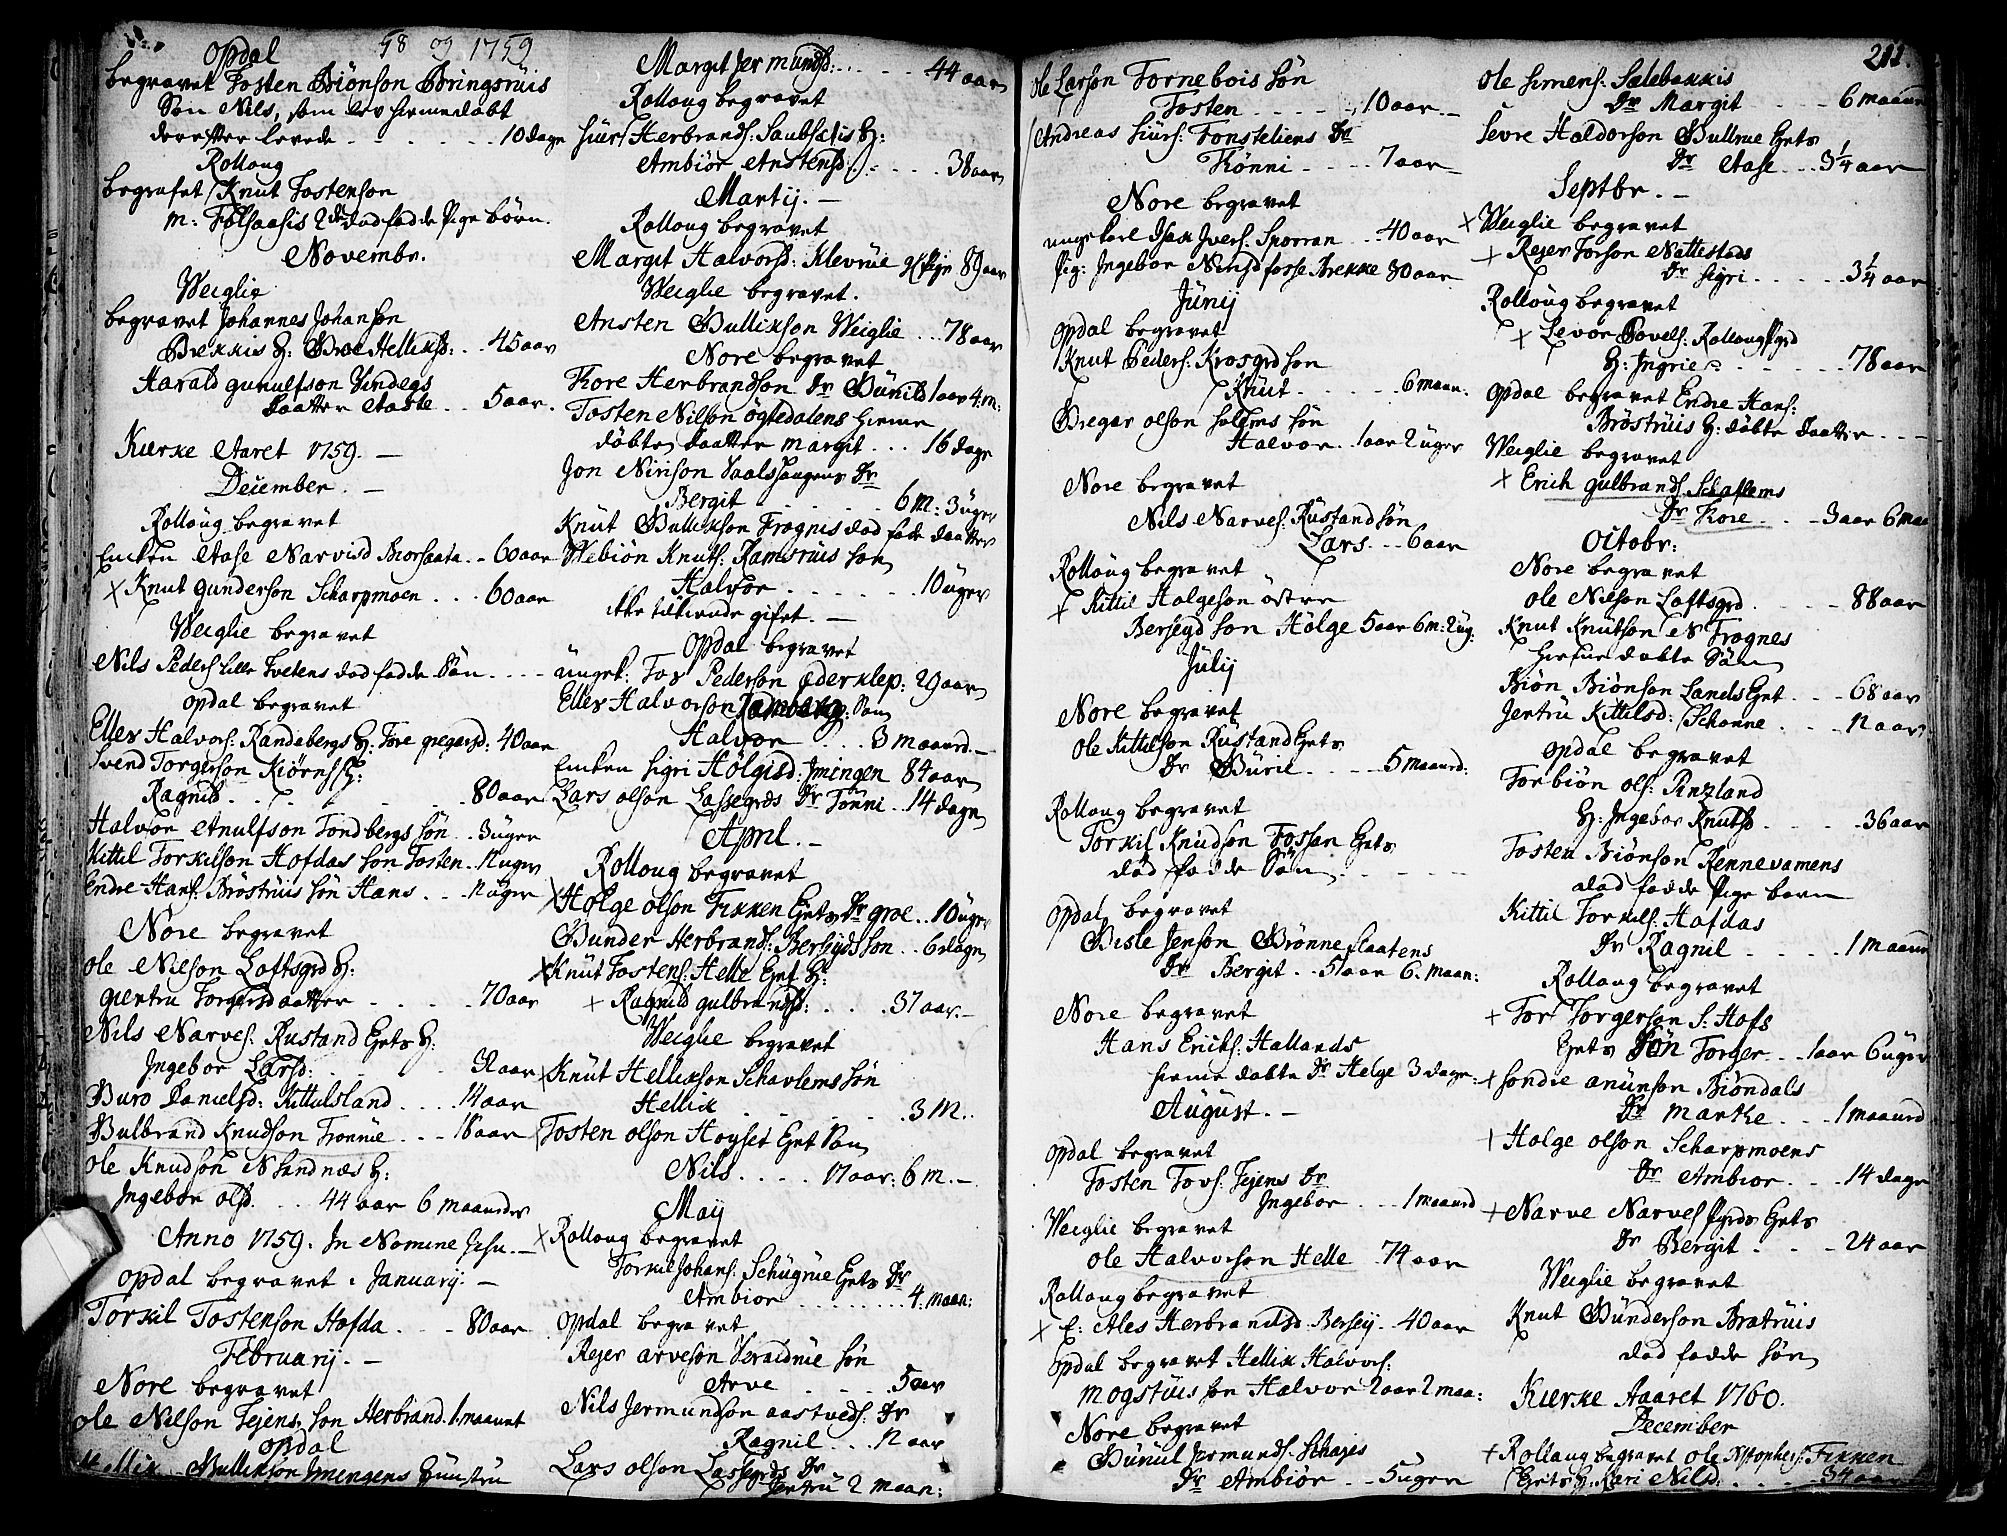 58 og 1759
Opdal
begravet Tosten Biönson Bringsrüis
Sön Nils, som blev hiemedöbt
derefter levede - - - - - 10 dage
Rolloug
begrafet Knut Tostenson
m: Fölsaasis 2de död födde Pige börn.
Novembr.
Weiglie
begravet Johannes Johanson
Brekkis H: Groe Helliksd: . . 45 aar
Harald gunulfson Vindegs
Daatter Aaste . . 5 aar.
Kierke Aaret 1759. -
December. -
Rolloug begravet
Enken Aase Narvisd Morsaata . . 60 aar
+ Knut Gunderson Scharpmoen . . . 60 aar
Weiglie begravet
Nils Peders: Lille Tvetens död födde Sön . . . .
Opdal begravet
Ellev Halvors: Randabergs H: Tore gregarsd: 40 aar
Svend Torgerson Kiörns H:
Ragnild . . . . . . . 80 aar
Halvor Anulfson Tondbergs sön . . 3 uger
Kittil Torkilson Hofdas sön Tosten . . 11 uger
Endre Hans: Bröstrüis sön Hans . . . 11 uger
Nore begravet
Ole Nilson Loftsgrd H:
giertru Torgersdaatter . . . . 70 aar
Nils Narves: Rustand Gets H:
Ingebor Larsd: . . . . 32 aar
Buro Danielsd: Kittilsland . . . 14 aar
Bulbrand Knudson Tronnie . . . 18 aar
Ole Knudson N Sandnæs H:
Ingebor olsd. . . . 44 aar 6 maaneder
Anno 1759. In Nomine Jesu. -
Opdal begravet. Januarij. -
Torkil Tostenson Hofda . . . 80 aar
Februarij. -
Nore begravet
Ole Nilson Tejens sön Herbrand. 1. maanet
Opdal
Bullikson Imingens Hustru
Margit Jermunds: . . . . 44 aar
Rolloug begravet
Siürs Herbrands: H:
Ambiör Anstensd: . . . . 38 aar
Martij. -
Rolloug begravet
Margit Halvorsd: Klevrüe 89 aar
Weiglie begravet.
Ansten Bullikson Weiglie . . . 78 aar
Nore begravet
Tore Herbrandson Dr Gunild 1 aar 4: m:
Tosten Nilson ögtedalens hieme
döbte Daatter Margit . . . 16 dage
Jon Nirison Vaalshaugens Dr
Bergit . . . . . 6 M: 3 uger
Knut Bullikson Frognes död fæde daatter
Webiön Knuts: Ramsrüis sön
Halvor . . . . . . 10 uger
Ikke tilkiende gifvet. -
Opdal begravet
üngek: Tov Pederson Öderklep: 29 aar
Ellev Halvorson Ramberg: Sön
Halvor . . . 3 maaned. -
Enken sigri Hölgisd: Imingen 84 aar
Lars olson Lassegrds Dr Tönni . . 14 dage
April. -
Rolloug begravet
+ Holge olson Fikken Gets Dr groe . . 10 uger
Gunder Herbrands: Bersgyds sön . . 6 dage
+ Knut Tostens: Helle Get H:
+ Ragnild gulbrandsd: . . . 37 aar. -
Weiglie begravet
+ Knüt Hellikson Schavlems sön
Hellik . . . . . . 3 M. .
Tosten olson Höyset Get Sön
Nils . . . . 17 aar: 6 M. -
Maij
+ Rolloug begravet
Torkil Johans: Schügrüe Gets Dr
Ambiör . . . . . . . 4. maan:
Opdal begravet
Rejer arveson sön
Arve . . . . . 5 aar
Nils Jermundson aastveds: Dr
Ragnil . . . 12 aar
Lars olson Lassegrds Dr
Jertru 2 maan:
211.
Ole Larson Tornebois sön
Tosten . . . . . 10 aar. -
Andreas Siürs: Fonsteliens Dr
Tönni . . . . 7 aar
Nore begravet
ungekarl Isak Ivers: Sporran . . . 40 aar
Pig: Ingebor Nirisd fosse Brekke 80 aar
Jünij
Opdal begravet
Knut Peders: Krosgrd sön
Knut . . . . . 6 maan.
Gregar olson sölems sön
Halvor . . 1 aar 2 uger
Nore begravet
Nils Narves: Rustand sön
Lars . . . 6 aar
Rolloug begravet
+ Kittil Holgeson östre
Bersgyd sön Holge 5 aar 6 m: 2 ug:
Jülij
Nore begravet
Ole Kittilson Rüstand Gets
Dr Gürie . . . . 5 maaned:
Rolloug begravet
Torkil Knudson Fossan Gets
död fødde Sön . . . . .
Opdal begravet
Gisle Jenson Brönneslaatens
Dr Bergit . . 5 aar 6. maan:
Nore begravet
Hans Ericks: Hallands
hieme döbte Dr Helge 3 dage.
August. -
Opdal begravet
Tosten Tovs: Tejens Dr
Ingebor . . . 1 maaned
Weiglie begravet
Ole Halvorson Helle 74 aar
Rolloug begravet
+ E: Ales Herbrandsd: Bersey . . 40 aar
Opdal begravet Hellik Halvors:
Mogstüis sön Halvor 2 aar 2 maa:
Nore begravet
Gunul Jermunds: Schajes
Dr Ambiör . . . 5 uger
Ole Simens: Sælebakkis
Dr Margit . . . . 6 maaned
Sevre Haldorson Bullrue Gets
Dr Aase . . . 3 1/4 aar
Septbr. -
+ Weiglie begravet
+ Rejer Torson Nættestads
Dr sigri . . . . . 3 1/4 aar
Rolloug begravet
+ Levor Povels: Rolloug Pgrd
H: Ingrie . . . . . 78 aar
Opdal begravet Endre Hans:
Bröstrüis H: döbte Daatter . . . .
Weiglie begravet
+ Erich gulbrands: Schaflems
Dr Tore . . . 3 aar 6 maa
Octobr:
Nore begravet
Ole Nilson Loftsgrd . . . . . 88 aar
Knut Knütson N Frognes
hieme döbte Sön
Biön Biönson Lands Get . . . 68 aar
Jertru Kittilsd: Schonne . . . 11 aar
Opdal begravet
Torbiön ols: Pinzland
H: Ingebor Knutsd . . . . . 36 aar
Tosten Biönson Rennevamens
död fødde Pige barn
Kittil Torkils: Hofdas
Dr Ragnil . . . . 1 maaned
Rolloug begravet
+ Tor Torgerson S: Hofs
Gets Sön Torger . . 1 aar 6 uger
+ Sondre anünson Biöndals
Dr Marthe . . . 1 maaned
+ Holge olson Scharpmoens
Dr Ambior . . . 14 dage
+ Narve Narves: Pgrds Gets
Dr Bergit . . . . 24 aar
Weiglie begravet
Knut Gunderson Bratrüis
död fødde sön
Kierke Aaaret 1760.
December
+ Rolloug begravet Ole Fikken
Gets H: Kari Nilsd: . . . . 34 aar